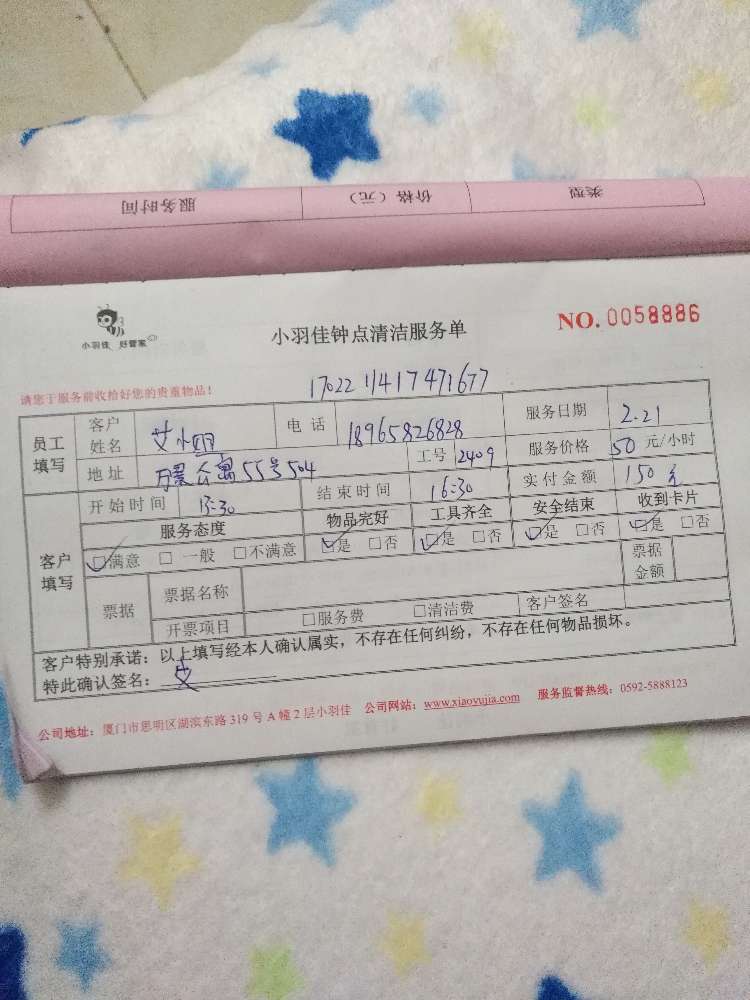 类型 价格（元） 服务时间
小羽佳 好管家
小羽佳钟点清洁服务单
NO. 0058886
请您于服务前收给好您的贵重物品！
17022 11417471677
员工填写 客户姓名 艾小姐 电话 18965826828 服务日期 2.21
地址 万景公寓55号504 工号 2409 服务价格 50 元/小时
客户填写 开始时间 13:30 结束时间 16:30 实付金额 150元
服务态度 物品完好 工具齐全 安全结束 收到卡片
☑满意 □一般 □不满意 ☑是 □否 ☑是 □否 ☑是 □否 ☑是 □否
票据 票据名称 票据金额
开票项目 □服务费 □清洁费 客户签名
客户特别承诺：以上填写经本人确认属实，不存在任何纠纷，不存在任何物品损坏。
特此确认签名：艾
公司地址：厦门市思明区湖滨东路 319 号 A 幢 2 层小羽佳 公司网站：www.xiaoyujia.com 服务监督热线：0592-5888123